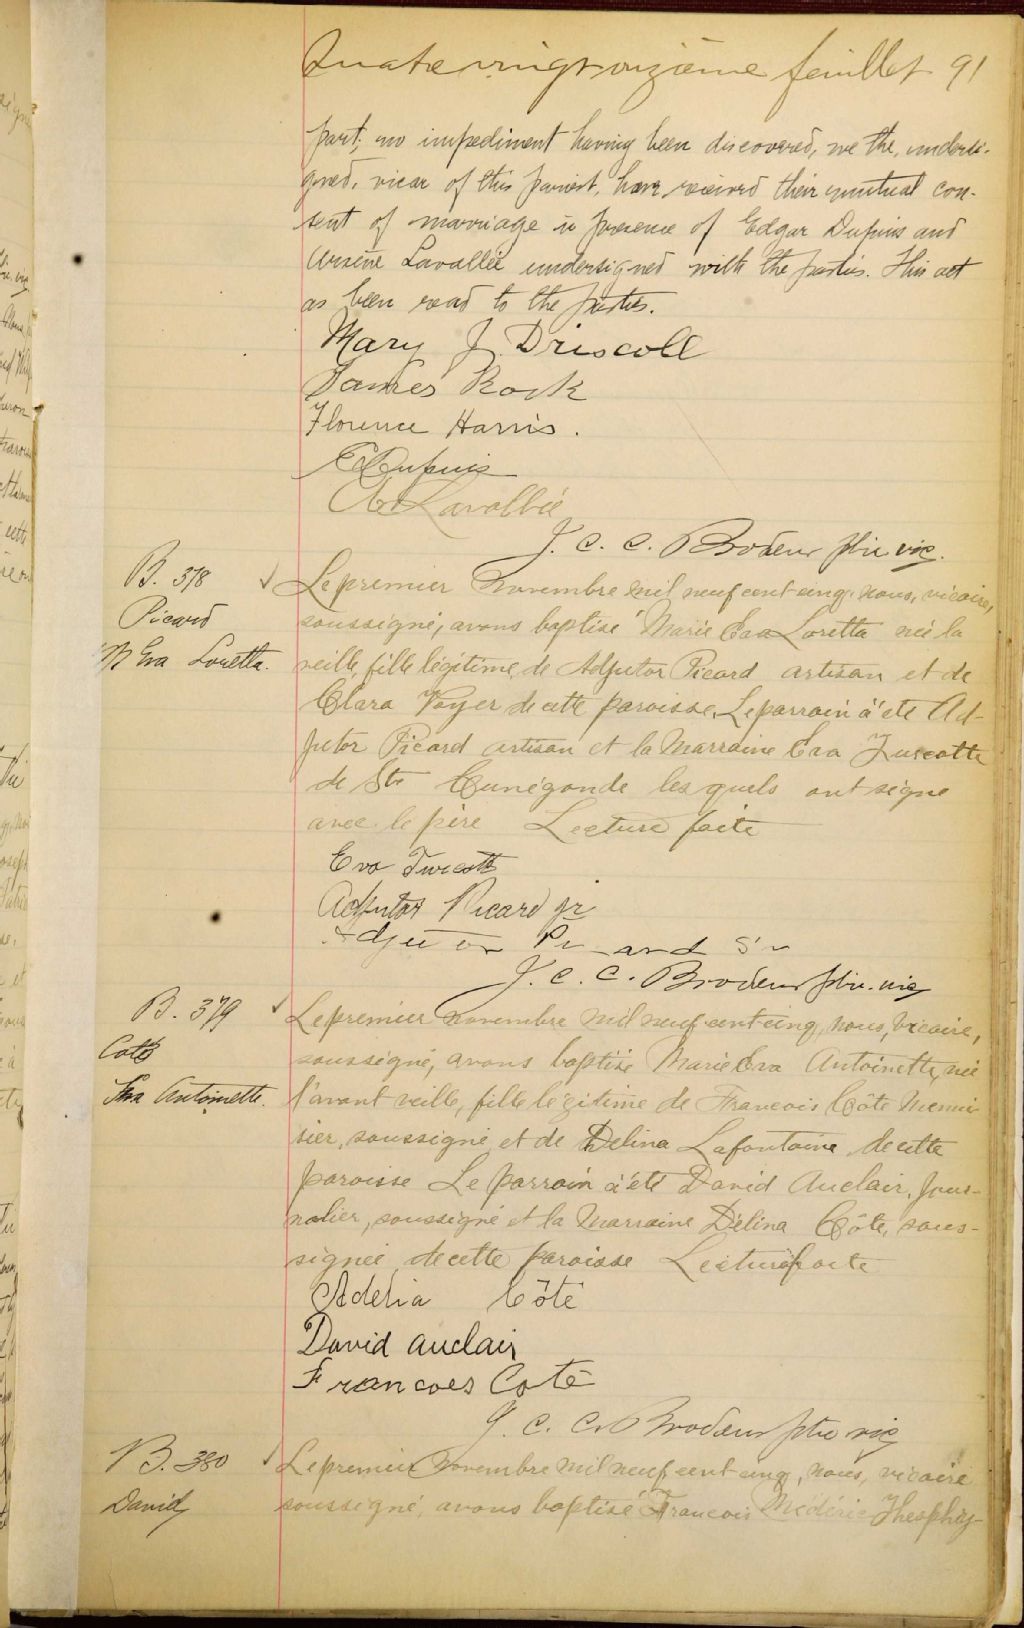 Quatre vingt onzième feuillet 91
part; no impediment having been discovered, we the, undersi-
gned, vicar of this parish, have received their mutual con-
sent of marriage in presence of Edgar Dupuis and
Arsène Lavallée undersigned with the parties. This act
as been read to the parties.
Mary J. Driscoll
James Rock
Florence Harris.
E Dupuis
A Lavallée
J. C. C. Brodeur ptre vic.
B. 378
Picard
M Eva Loretta.
Le premier novembre mil neuf cent cinq, nous, vicaire,
soussigné, avons baptisé Marie Eva Loretta née la
veille, fille légitime de Adjutor Picard artisan et de
Clara Voyer de cette paroisse, Le parrain a été Ad-
jutor Picard artisan et la Marraine Eva Turcotte
de Ste Cunégonde les quels ont signé
avec le père Lecture faite
Eva Turcotte
Adjutor Picard jr
Adjutor Picard Sr
J. C. C. Brodeur ptre. vic
B. 379
Coté
Eva Antoinette.
Le premier novembre mil neuf cent cinq, nous, vicaire,
soussigné, avons baptisé Marie Eva Antoinette, née
l'avant veille, fille légitime de Francois Côté Menui-
sier, soussigné, et de Délina Lafontaine de cette
paroisse Le parrain a été David Auclair, jour-
nalier, soussigné et la Marraine Délina Côté, sous-
signée de cette paroisse Lecture faite
Adélia Côté
David Auclair
Francoes Coté
J. C. C. Brodeur ptre vic
B. 380
David
Le premier Novembre mil neuf cent cinq, nous, vicaire
soussigné, avons baptisé Francois Médéric Théophi-